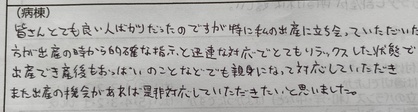 (病棟)
皆さんとても良い人ばかりだったのですが特に私の出産に立ち会っていただいた
方が出産の時から的確な指示と迅速な対応でとてもリラックスした状態で
出産でき産後もおっぱいのことなどでも親身になって対応していただき
また出産の機会があれば是非対応していただきたいと思いました。